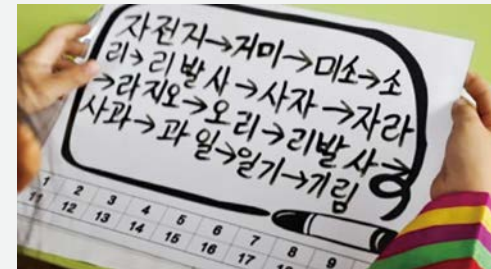 자전거→거미→미소→소
리→리발사→사자→자라
→라지오→오리→리발사→
사과→과일→일기→기림
1 2 3 4 5 6 7 8 9
11 12 13 14 15 16 17